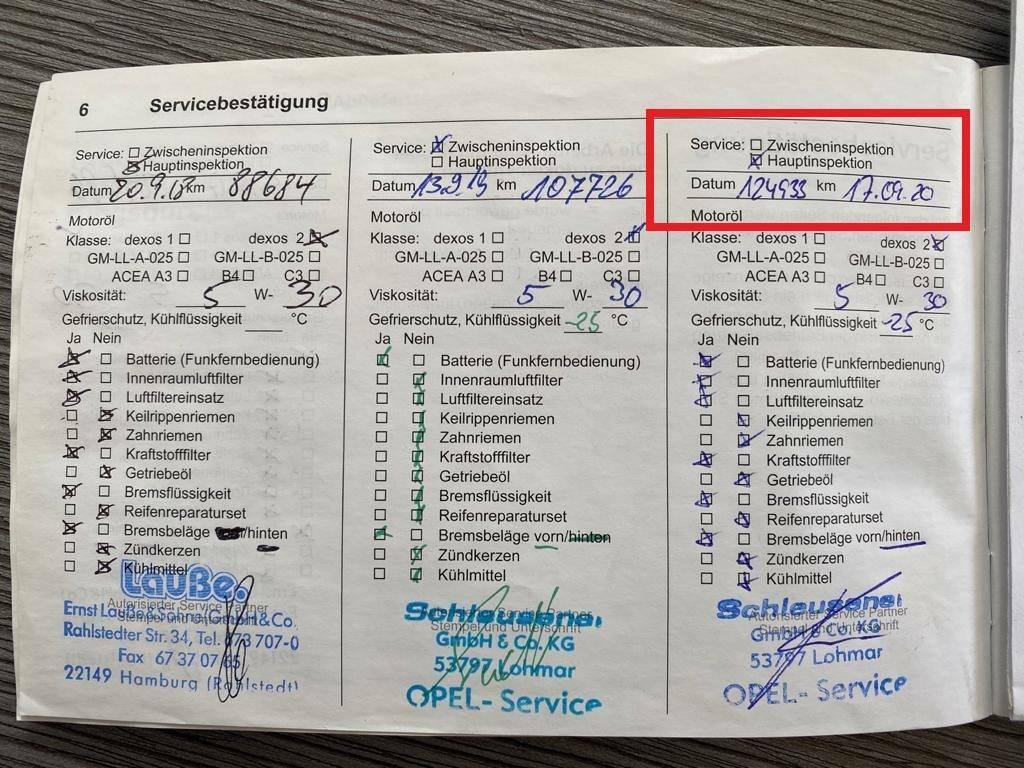 6 Servicebestätigung
Service: Zwischeninspektion
Hauptinspektion
Datum 20.9.18 km 88684
Motoröl
Klasse: dexos 1 dexos 2
GM-LL-A-025 GM-LL-B-025
ACEA A3 B4 C3
Viskosität: 5 W- 30
Gefrierschutz, Kühlflüssigkeit °C
Ja Nein
Batterie (Funkfernbedienung)
Innenraumluftfilter
Luftfiltereinsatz
Keilrippenriemen
Zahnriemen
Kraftstofffilter
Getriebeöl
Bremsflüssigkeit
Reifenreparaturset
Bremsbeläge /hinten
Zündkerzen
Kühlmittel
Lauße.
Autorisierter Service Partner
Stempel und Unterschrift
Ernst Lauße & Söhne GmbH & Co.
Rahlstedter Str. 34, Tel. 673 707-0
Fax 67 37 07 65
22149 Hamburg (Rahlstedt)
Service: Zwischeninspektion
Hauptinspektion
Datum 13.9.19 km 107726
Motoröl
Klasse: dexos 1 dexos 2
GM-LL-A-025 GM-LL-B-025
ACEA A3 B4 C3
Viskosität: 5 W- 30
Gefrierschutz, Kühlflüssigkeit -25 °C
Ja Nein
Batterie (Funkfernbedienung)
Innenraumluftfilter
Luftfiltereinsatz
Keilrippenriemen
Zahnriemen
Kraftstofffilter
Getriebeöl
Bremsflüssigkeit
Reifenreparaturset
Bremsbeläge vorn/hinten
Zündkerzen
Kühlmittel
Schleusener
Autorisierter Service Partner
Stempel und Unterschrift
GmbH & Co. KG
53797 Lohmar
OPEL- Service
Service: Zwischeninspektion
Hauptinspektion
Datum 124933 km 17.09.20
Motoröl
Klasse: dexos 1 dexos 2
GM-LL-A-025 GM-LL-B-025
ACEA A3 B4 C3
Viskosität: 5 W- 30
Gefrierschutz, Kühlflüssigkeit -25 °C
Ja Nein
Batterie (Funkfernbedienung)
Innenraumluftfilter
Luftfiltereinsatz
Keilrippenriemen
Zahnriemen
Kraftstofffilter
Getriebeöl
Bremsflüssigkeit
Reifenreparaturset
Bremsbeläge vorn/hinten
Zündkerzen
Kühlmittel
Schleusener
Autorisierter Service Partner
Stempel und Unterschrift
GmbH & Co. KG
53797 Lohmar
OPEL- Service